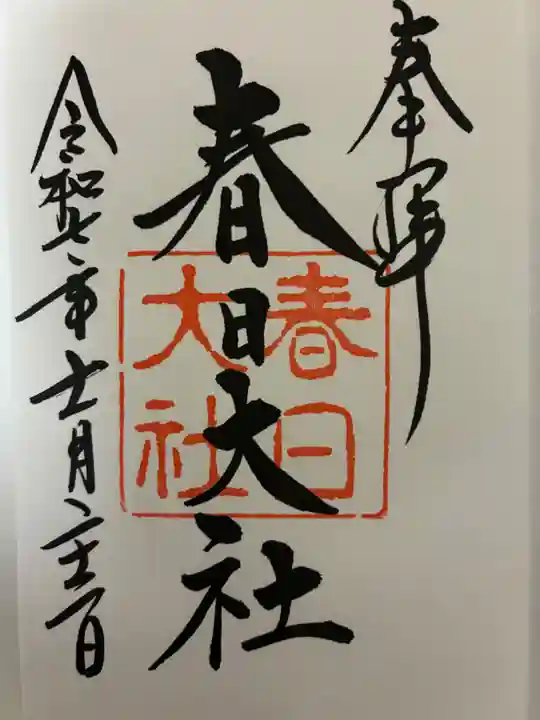 奉拝
春日大社
春日
大社
令和七年十一月二十二日